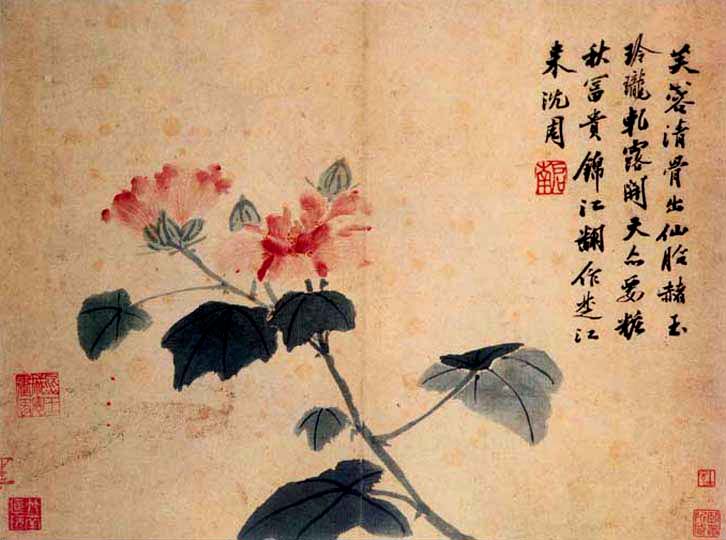 芙蓉清骨出仙胎赭玉
玲瓏軋露開天亦要糚
秋富貴錦江翻作楚江
來沈周
啟南